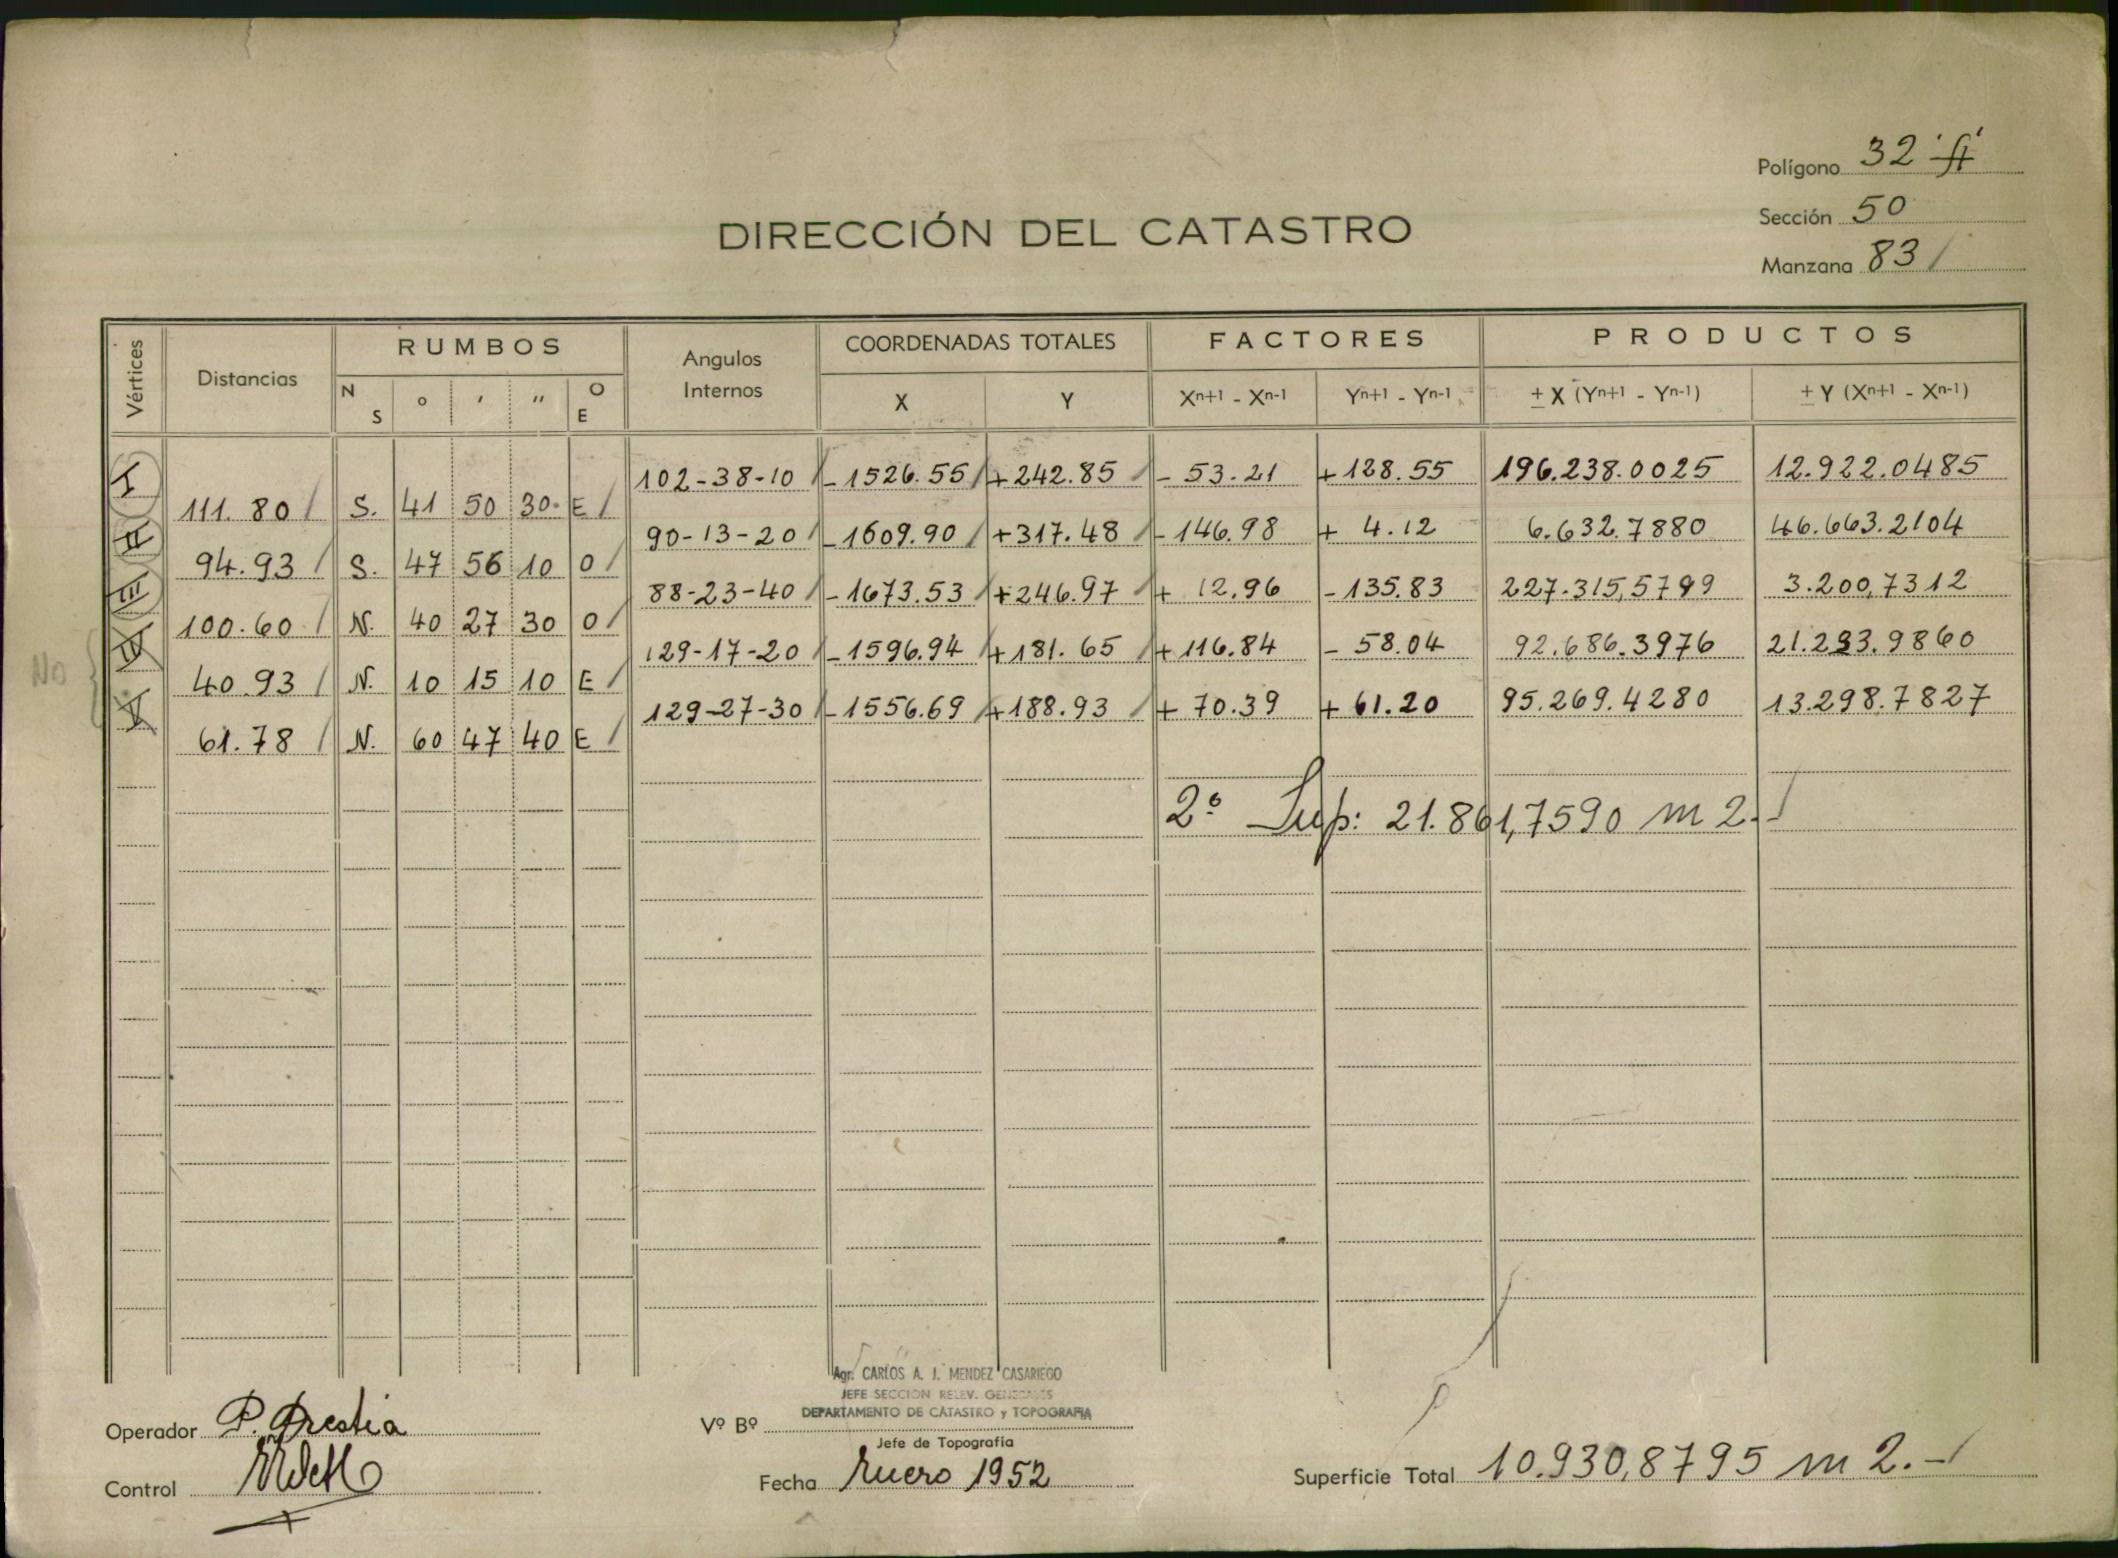 Polígono 32 "A"
Sección 50
Manzana 83 /
DIRECCIÓN DEL CATASTRO
Vértices Distancias RUMBOS Angulos Internos COORDENADAS TOTALES FACTORES PRODUCTOS
N S ° ' " O E X Y Xn+1 - Xn-1 Yn+1 - Yn-1 ± X (Yn+1 - Yn-1) ± Y (Xn+1 - Xn-1)
I 102-38-10 / -1526.55 / +242.85 / - 53.21 +128.55 196.238.0025 12.922.0485
111.80 / S. 41 50 30 E /
II 90-13-20 / -1609.90 / +317.48 / -146.98 + 4.12 6.632.7880 46.663.2104
94.93 / S. 47 56 10 O /
III 88-23-40 / -1673.53 / +246.97 / + 12.96 -135.83 227.315,5799 3.200,7312
100.60 / N. 40 27 30 O /
IV 129-17-20 / -1596.94 / +181.65 / +116.84 - 58.04 92.686.3976 21.223.9860
No
40.93 / N. 10 15 10 E /
V 129-27-30 / -1556.69 / +188.93 / + 70.39 + 61.20 95.269.4280 13.298.7827
61.78 / N. 60 47 40 E /
2ª Sup: 21.861,7590 m2.- /
Agr. CARLOS A. J. MENDEZ CASARIEGO
JEFE SECCION RELEV. GENERALES
DEPARTAMENTO DE CATASTRO y TOPOGRAFIA
Operador P. Prestia
Vº Bº
Jefe de Topografía
Control
Fecha Enero 1952
Superficie Total 10.930,8795 m2.- /